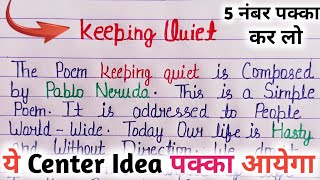 5 नंबर पक्का
कर लो
Keeping Quiet
The Poem keeping quiet is Composed
by Pablo Neruda. This is a Simple
Poem. It is addressed to People
World-Wide. Today Our life is Hasty
and Without Direction. We do
ये Center Idea पक्का आयेगा